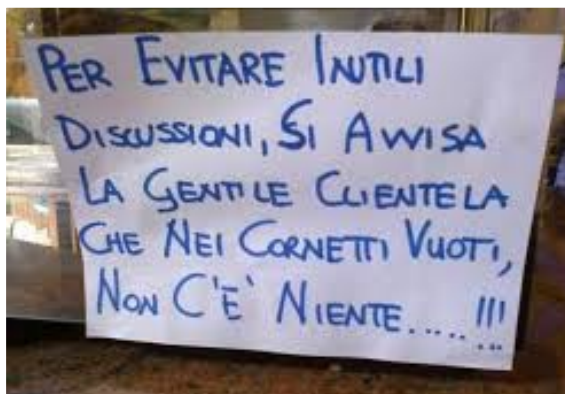 PER EVITARE INUTILI
DISCUSSIONI, SI AVVISA
LA GENTILE CLIENTELA
CHE NEI CORNETTI VUOTI,
NON C'È NIENTE.....!!!